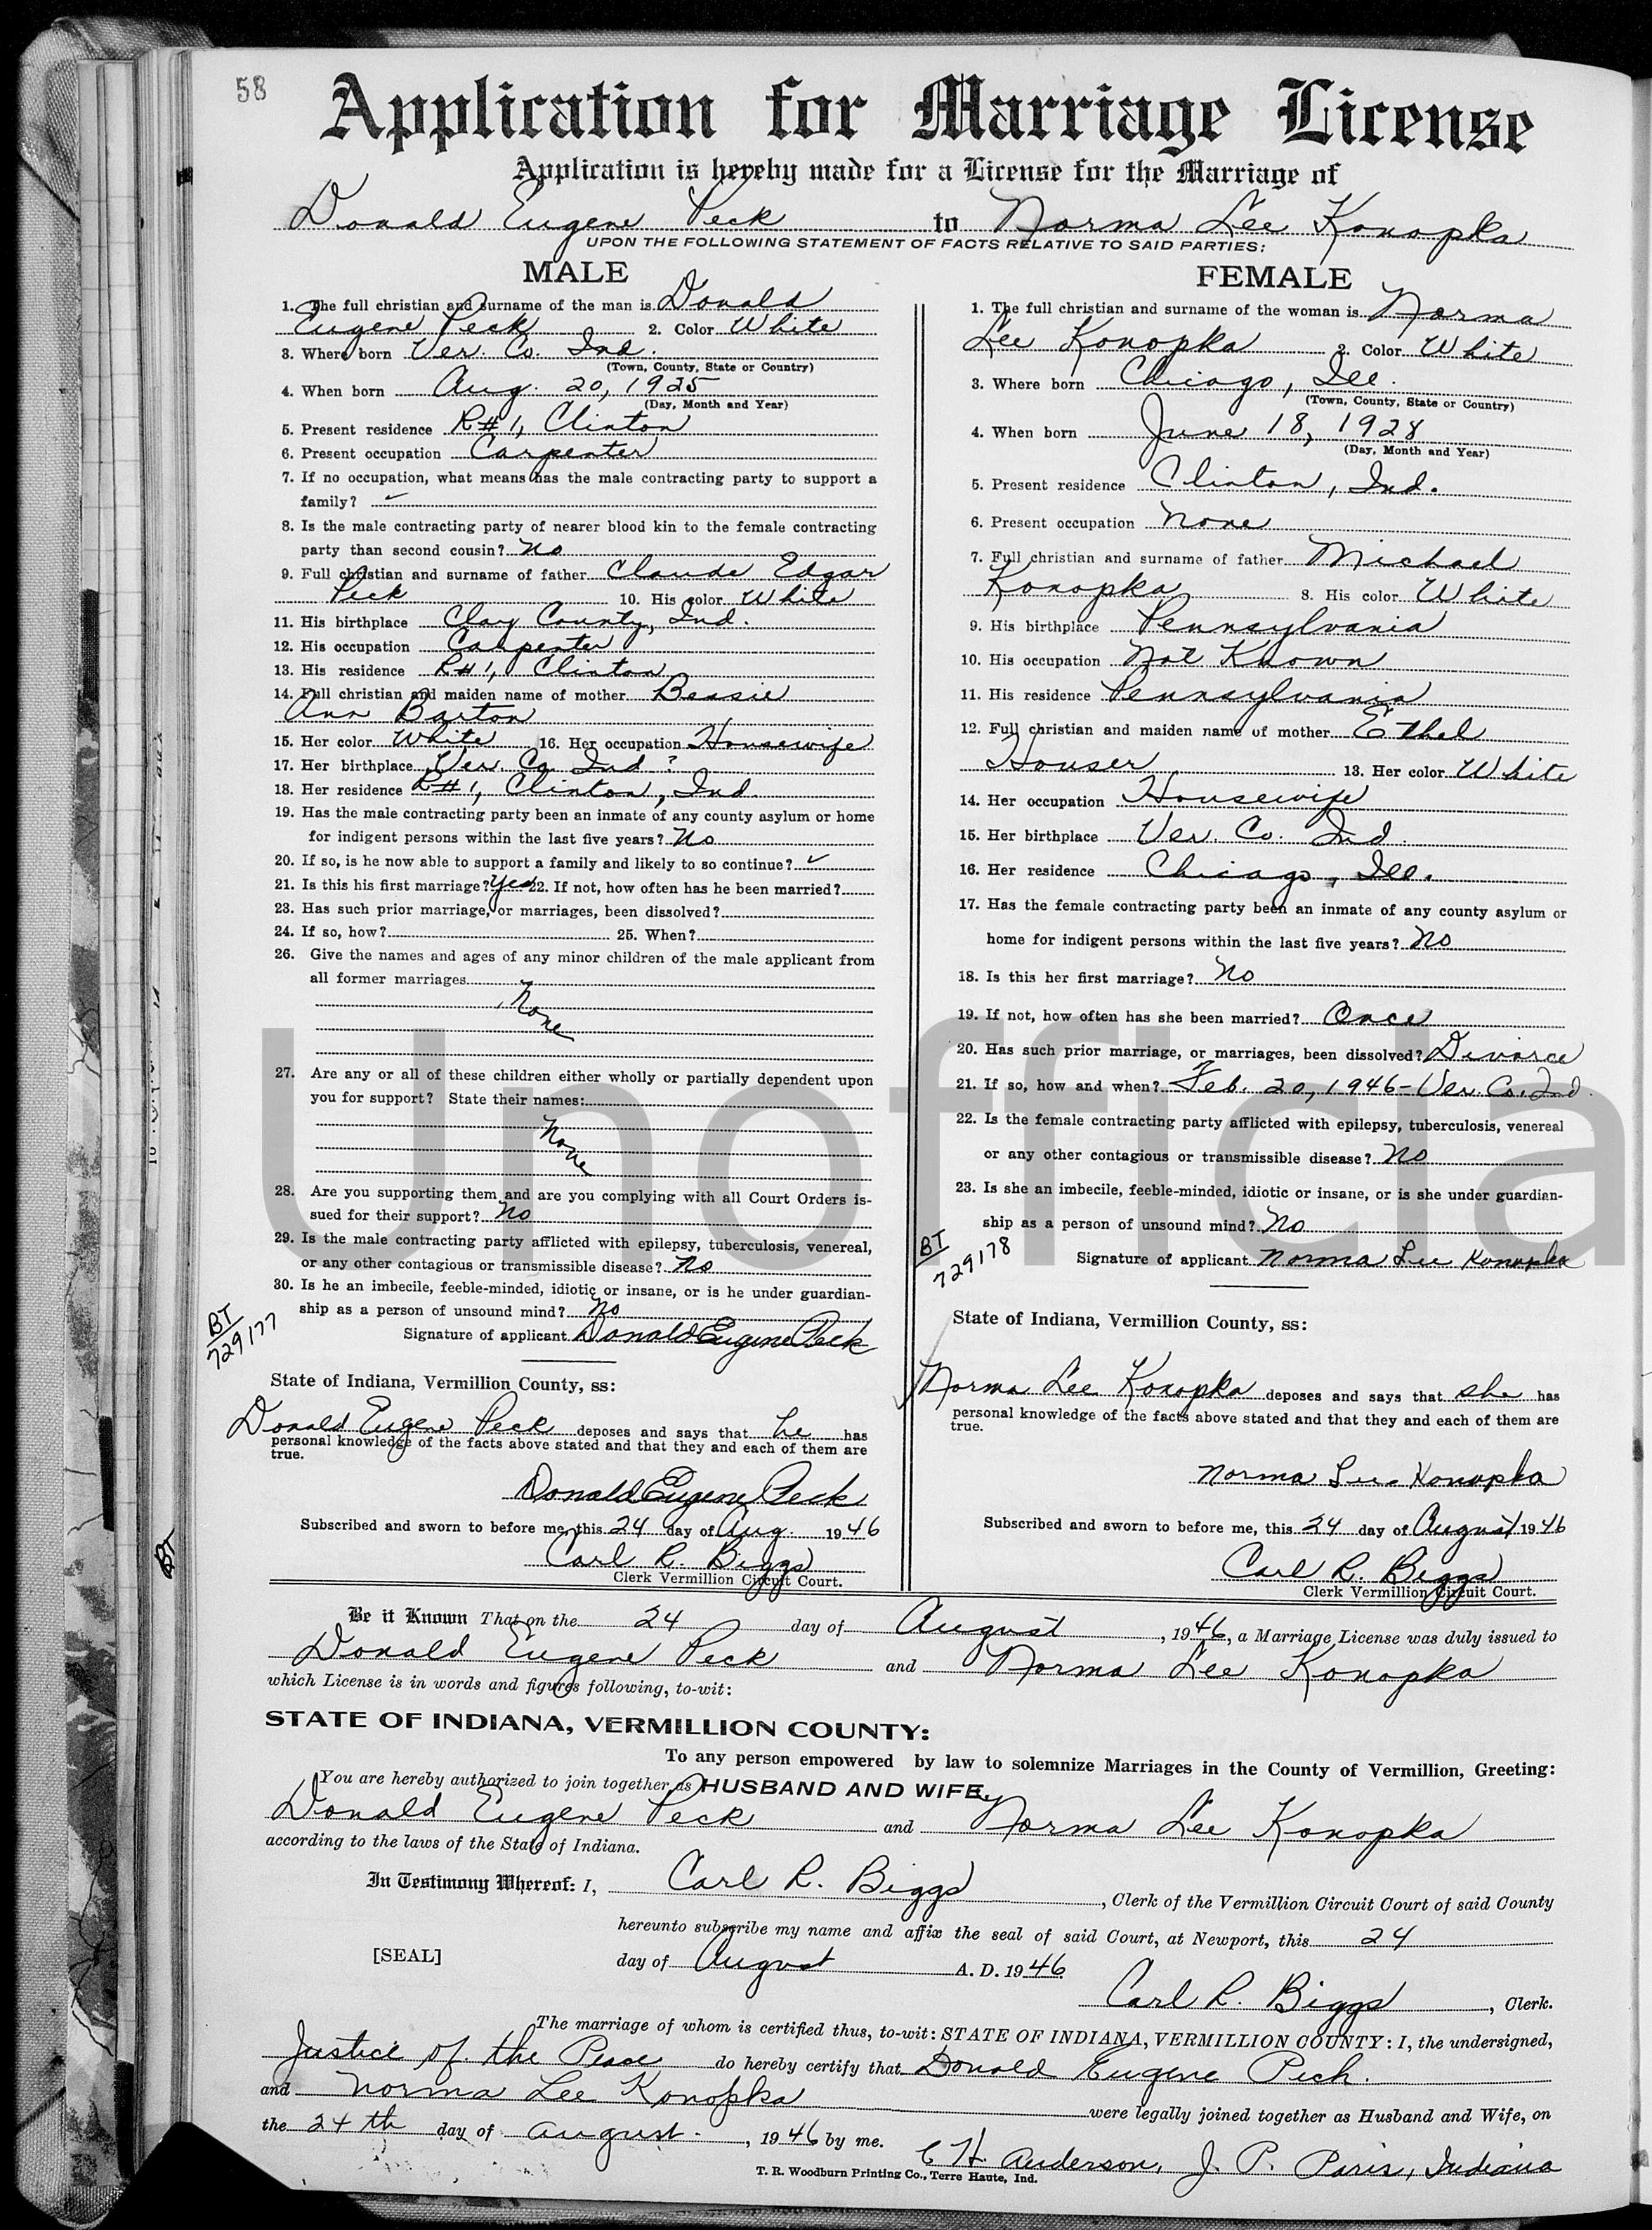 58
Application for Marriage License
Application is hereby made for a License for the Marriage of
Donald Eugene Peck to Norma Lee Konopka
UPON THE FOLLOWING STATEMENT OF FACTS RELATIVE TO SAID PARTIES:
MALE
1. The full christian and surname of the man is Donald
Eugene Peck 2. Color White
3. Where born Ver. Co. Ind.
(Town, County, State or Country)
4. When born Aug. 20, 1925
(Day, Month and Year)
5. Present residence R#1, Clinton
6. Present occupation Carpenter
7. If no occupation, what means has the male contracting party to support a
family? ✓
8. Is the male contracting party of nearer blood kin to the female contracting
party than second cousin? No
9. Full christian and surname of father Claude Edgar
Peck 10. His color White
11. His birthplace Clay County, Ind.
12. His occupation Carpenter
13. His residence R#1, Clinton
14. Full christian and maiden name of mother Bessie
Ann Barton
15. Her color White 16. Her occupation Housewife
17. Her birthplace Ver. Co. Ind ?
18. Her residence R#1, Clinton, Ind.
19. Has the male contracting party been an inmate of any county asylum or home
for indigent persons within the last five years? No
20. If so, is he now able to support a family and likely to so continue? ✓
21. Is this his first marriage? Yes 22. If not, how often has he been married?
23. Has such prior marriage, or marriages, been dissolved?
24. If so, how? 25. When?
26. Give the names and ages of any minor children of the male applicant from
all former marriages
None
27. Are any or all of these children either wholly or partially dependent upon
you for support? State their names:
None
28. Are you supporting them and are you complying with all Court Orders is-
sued for their support? No
29. Is the male contracting party afflicted with epilepsy, tuberculosis, venereal,
or any other contagious or transmissible disease? No
30. Is he an imbecile, feeble-minded, idiotic or insane, or is he under guardian-
ship as a person of unsound mind? No
BT
729177
Signature of applicant Donald Eugene Peck
State of Indiana, Vermillion County, ss:
Donald Eugene Peck deposes and says that he has
personal knowledge of the facts above stated and that they and each of them are
true.
Donald Eugene Peck
Subscribed and sworn to before me, this 24 day of Aug. 1946
Carl R. Biggs
Clerk Vermillion Circuit Court.
BT
FEMALE
1. The full christian and surname of the woman is Norma
Lee Konopka 2. Color White
3. Where born Chicago, Ill.
(Town, County, State or Country)
4. When born June 18, 1928
(Day, Month and Year)
5. Present residence Clinton, Ind.
6. Present occupation None
7. Full christian and surname of father Michael
Konopka 8. His color White
9. His birthplace Pennsylvania
10. His occupation Not Known
11. His residence Pennsylvania
12. Full christian and maiden name of mother Ethel
Houser 13. Her color White
14. Her occupation Housewife
15. Her birthplace Ver. Co. Ind.
16. Her residence Chicago, Ill.
17. Has the female contracting party been an inmate of any county asylum or
home for indigent persons within the last five years? No
18. Is this her first marriage? No
19. If not, how often has she been married? Once
20. Has such prior marriage, or marriages, been dissolved? Divorce
21. If so, how and when? Feb. 20, 1946 - Ver. Co. Ind
22. Is the female contracting party afflicted with epilepsy, tuberculosis, venereal
or any other contagious or transmissible disease? No
23. Is she an imbecile, feeble-minded, idiotic or insane, or is she under guardian-
ship as a person of unsound mind? No
BT
729178
Signature of applicant Norma Lee Konopka
State of Indiana, Vermillion County, ss:
Norma Lee Konopka deposes and says that she has
personal knowledge of the facts above stated and that they and each of them are
true.
Norma Lee Konopka
Subscribed and sworn to before me, this 24 day of August 1946
Carl R. Biggs
Clerk Vermillion Circuit Court.
Unofficia
Be it Known That on the 24 day of August, 1946, a Marriage License was duly issued to
Donald Eugene Peck and Norma Lee Konopka
which License is in words and figures following, to-wit:
STATE OF INDIANA, VERMILLION COUNTY:
To any person empowered by law to solemnize Marriages in the County of Vermillion, Greeting:
You are hereby authorized to join together as HUSBAND AND WIFE,
Donald Eugene Peck and Norma Lee Konopka
according to the laws of the State of Indiana.
In Testimony Whereof: I, Carl R. Biggs, Clerk of the Vermillion Circuit Court of said County
hereunto subscribe my name and affix the seal of said Court, at Newport, this 24
[SEAL] day of August A. D. 1946
Carl R. Biggs, Clerk.
The marriage of whom is certified thus, to-wit: STATE OF INDIANA, VERMILLION COUNTY: I, the undersigned,
Justice of the Peace do hereby certify that Donald Eugene Peck.
and Norma Lee Konopka were legally joined together as Husband and Wife, on
the 24th day of August, 1946 by me.
C H Anderson, J. P. Paris, Indiana
T. R. Woodburn Printing Co., Terre Haute, Ind.